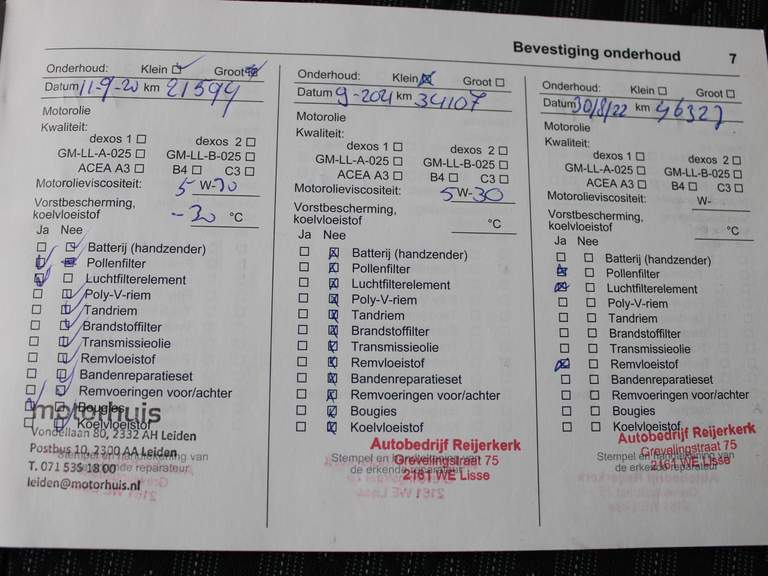 Bevestiging onderhoud 7
Onderhoud: Klein Groot
Datum 11-9-20 km 21594
Motorolie
Kwaliteit:
dexos 1 dexos 2
GM-LL-A-025 GM-LL-B-025
ACEA A3 B4 C3
Motorolieviscositeit: 5 W-30
Vorstbescherming,
koelvloeistof -30 °C
Ja Nee
Batterij (handzender)
Pollenfilter
Luchtfilterelement
Poly-V-riem
Tandriem
Brandstoffilter
Transmissieolie
Remvloeistof
Bandenreparatieset
Remvoeringen voor/achter
Bougies
Koelvloeistof
motorhuis
Vondellaan 80, 2332 AH Leiden
Postbus 10, 2300 AA Leiden
Stempel en handtekening van
T. 071 535 18 00
de erkende reparateur
leiden@motorhuis.nl
Onderhoud: Klein Groot
Datum 9-2021 km 34107
Motorolie
Kwaliteit:
dexos 1 dexos 2
GM-LL-A-025 GM-LL-B-025
ACEA A3 B4 C3
Motorolieviscositeit: 5 W-30
Vorstbescherming,
koelvloeistof °C
Ja Nee
Batterij (handzender)
Pollenfilter
Luchtfilterelement
Poly-V-riem
Tandriem
Brandstoffilter
Transmissieolie
Remvloeistof
Bandenreparatieset
Remvoeringen voor/achter
Bougies
Koelvloeistof
Autobedrijf Reijerkerk
Stempel en handtekening van
Grevelingstraat 75
de erkende reparateur
2161 WE Lisse
Onderhoud: Klein Groot
Datum 30/8/22 km 46327
Motorolie
Kwaliteit:
dexos 1 dexos 2
GM-LL-A-025 GM-LL-B-025
ACEA A3 B4 C3
Motorolieviscositeit: W-
Vorstbescherming,
koelvloeistof °C
Ja Nee
Batterij (handzender)
Pollenfilter
Luchtfilterelement
Poly-V-riem
Tandriem
Brandstoffilter
Transmissieolie
Remvloeistof
Bandenreparatieset
Remvoeringen voor/achter
Bougies
Koelvloeistof
Autobedrijf Reijerkerk
Grevelingstraat 75
Stempel en handtekening van
2161 WE Lisse
de erkende reparateur